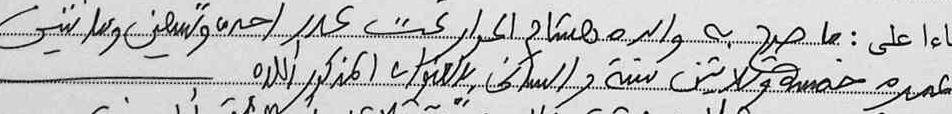 ءا على : ما صرح به والده هشام الحوار تحت عدد احدى وتسعين ومائتين
عمره خمسة وثلاثين سنة و الساكن بالعنوان المذكور أعلاه